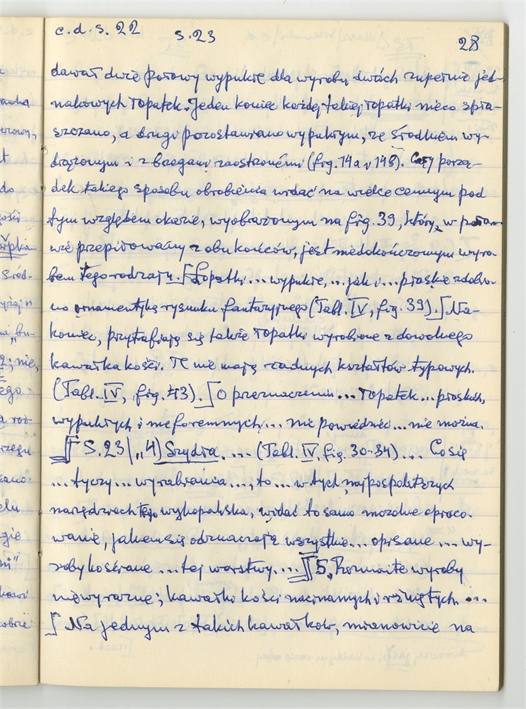 c.d.s. 22 s. 23 28
dawał dwie połowy wypukłe dla wyrobu dwóch zupełnie jed-
nakowych łopatek. Jeden koniec każdej takiej łopatki nieco spła-
szczano, a drugi pozostawiano wypukłym, ze środkiem wy-
drążonym i z brzegami zaostrzonemi (fig. 14a i 14b). Cały porzą-
dek takiego sposobu obrobienia widać na wielce cennym pod
tym względem okazie, wyobrażonym na fig. 39, który, w
wie przepiłowany z obu końców, jest niedokończonym wyro-
bem tego rodzaju. ⌠Łopatki ... wypukłe, .. jak i ... płaskie zdobio-
no ornamentyką rysunku fantazyjnego (Tabl. IV, fig. 39).⌡ Na-
koniec, przytrafiają się także łopatki wyrobione z dowolnego
kawałka kości. Te nie mają żadnych kształtów typowych.
(Tabl. IV, fig. 43). ⌠O przeznaczeniu ... łopatek ... płaskich,
wypukłych i nieforemnych ... nic powiedzieć ... nie można.
⌠⌠ S. 23 | „4) Szydła. ... (Tabl. IV, fig. 30-34) ... Co się
... tyczy ... wyrabiania ..., to ... w tych najpospolitszych
narzędziach tego wykopaliska, widać to samo mozolne opraco-
wanie, jakiem się odznaczają wszystkie ... opisane ... wy-
roby kościane ... tej warstwy. ... ⌠⌠ 5. Rozmaite wyroby
niewyraźne; kawałki kości nacinanych i rżniętych. ...
⌠ Na jednym z takich kawałków, mianowicie na